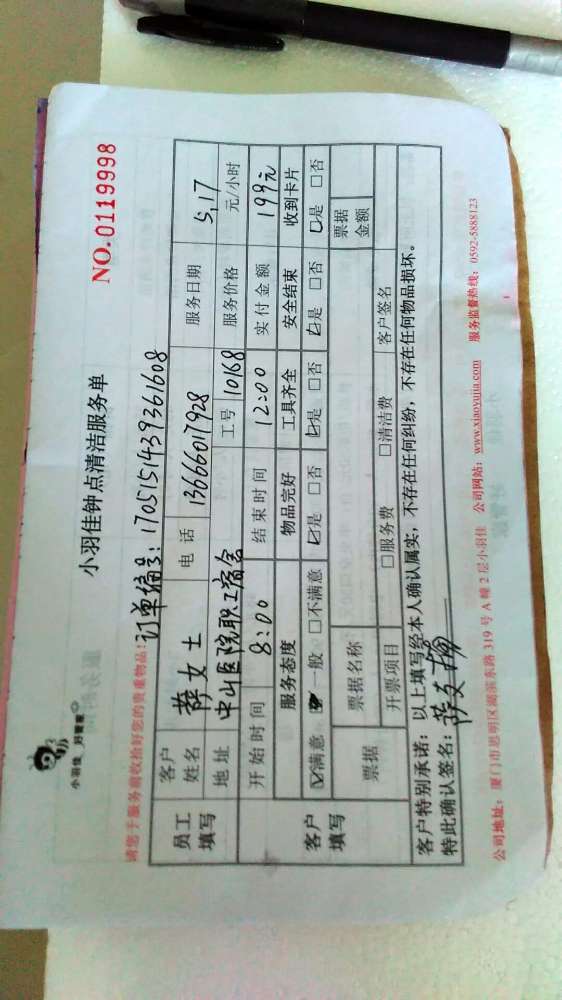 小羽佳 好管家
小羽佳钟点清洁服务单
NO.0119998
请您于服务前收拾好您的贵重物品!
订单编号:1705151439361608
员工填写
客户姓名 薛女士 电话 13666017928 服务日期 5,17
地址 中山医院职工宿舍 工号 10168 服务价格 元/小时
开始时间 8:00 结束时间 12:00 实付金额 199元
客户填写
服务态度 物品完好 工具齐全 安全结束 收到卡片
☑满意 一般 □不满意 ☑是 □否 ☑是 □否 ☑是 □否 ☑是 □否
票据 票据名称 票据金额
开票项目 □服务费 □清洁费 客户签名
客户特别承诺: 以上填写经本人确认属实,不存在任何纠纷,不存在任何物品损坏。
特此确认签名:
公司地址: 厦门市思明区湖滨东路 319 号 A 幢 2 层小羽佳 公司网站: www.xiaoyujia.com 服务监督热线: 0592-5888123